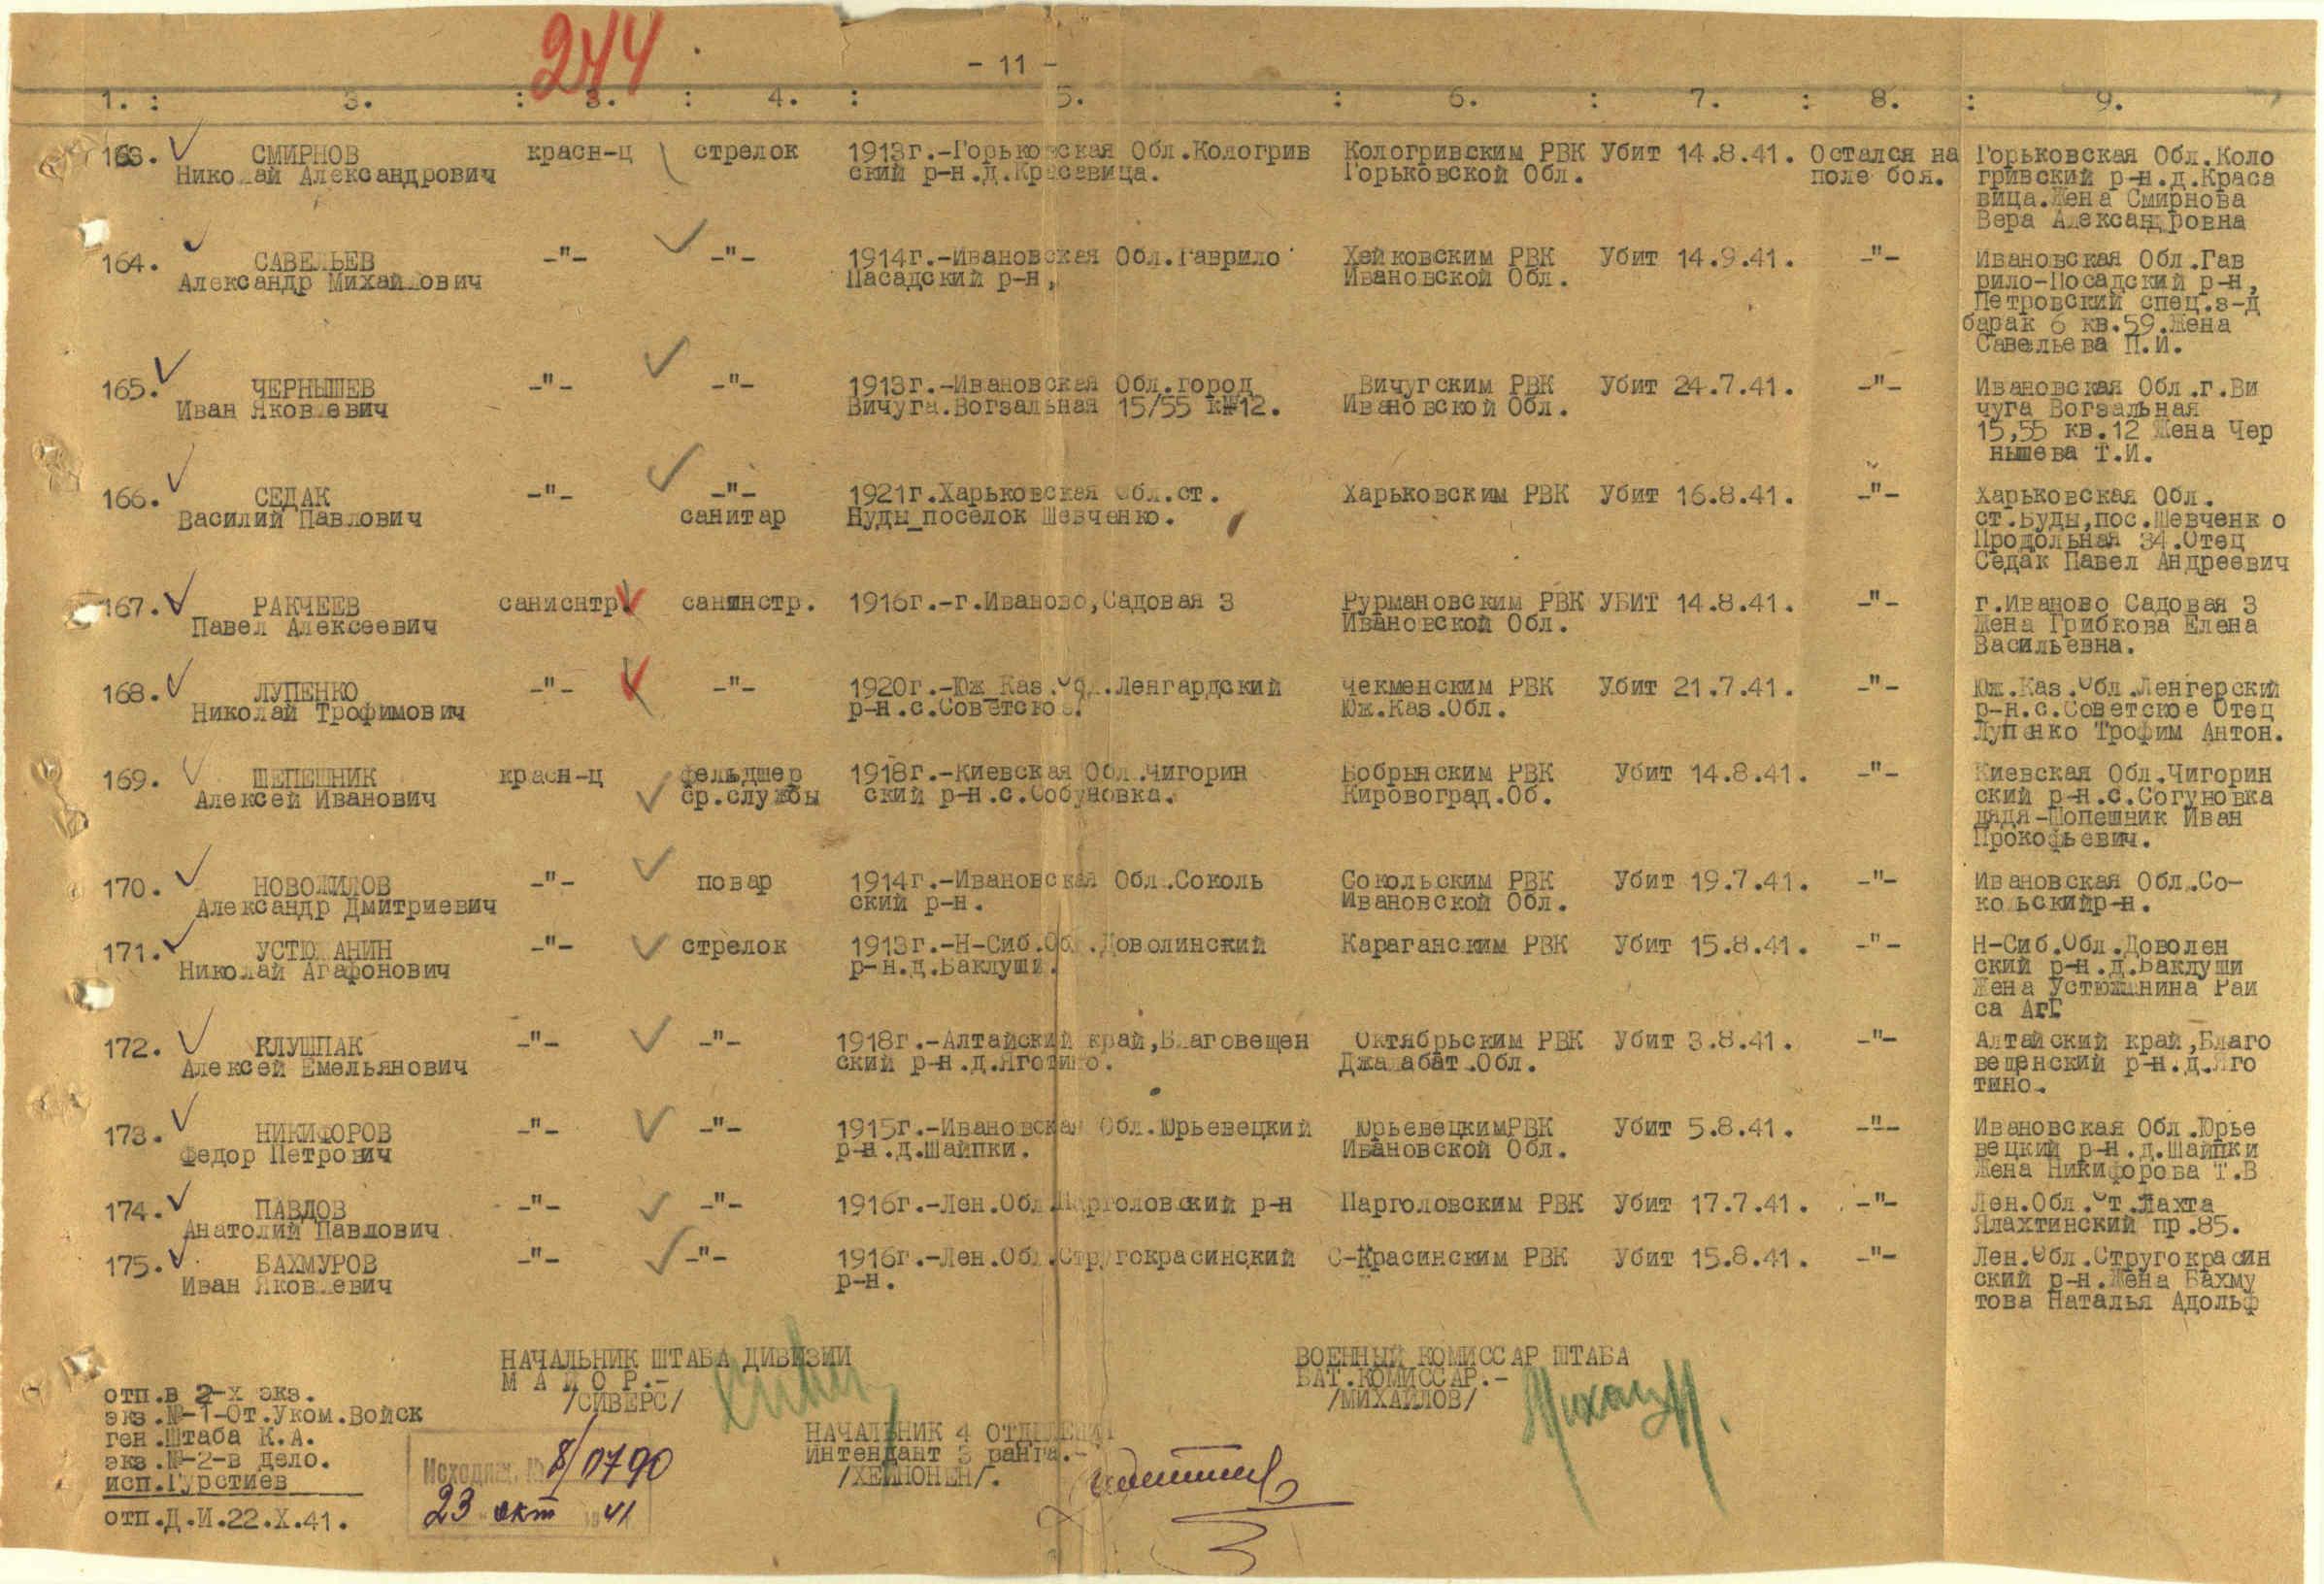 244
- 11 -
1. : 3. : 3. : 4. : 5. : 6. : 7. : 8. : 9.
163. СМИРНОВ красн-ц стрелок 1913г.-Горьковская Обл.Кологрив Кологривским РВК Убит 14.8.41. Остался на Горьковская Обл.Коло
Николай Александрович ский р-н.д.Красавица. Горьковской Обл. поле боя. гривский р-н.д.Краса
вица.Жена Смирнова
Вера Александровна
164. САВЕЛЬЕВ -"- -"- 1914г.-Ивановская Обл.Гаврило Хейковским РВК Убит 14.9.41. -"- Ивановская Обл.Гав
Александр Михайлович Пасадский р-н, Ивановской Обл. рило-Посадский р-н,
Петровский спец.з-д
барак 6 кв.59.Жена
Савельева П.И.
165. ЧЕРНЫШЕВ -"- -"- 1913г.-Ивановская Обл.город Вичугским РВК Убит 24.7.41. -"- Ивановская Обл.г.Ви
Иван Яковлевич Вичуга.Вогзальная 15/55 к№12. Ивановской Обл. чуга Вогзальная
15,55 кв.12 Жена Чер
нышева Т.И.
166. СЕДАК -"- -"- 1921г.Харьковская Обл.ст. Харьковским РВК Убит 16.8.41. -"- Харьковская Обл.
Василий Павлович санитар Нуды_поселок Шевченко. ст.Буды,пос.Шевченко
Продольная 34.Отец
Седак Павел Андреевич
167. РАКЧЕЕВ саниснтр. санинстр. 1916г.-г.Иваново,Садовая 3 Рурмановским РВК УБИТ 14.8.41. -"- г.Иваново Садовая 3
Павел Алексеевич Ивановской Обл. Жена Грибкова Елена
Васильевна.
168. ЛУПЕНКО -"- -"- 1920г.-Юж Каз.Обл.Ленгардский Чекменским РВК Убит 21.7.41. -"- Юж.Каз.Обл.Ленгерский
Николай Трофимович р-н.с.Советское. Юж.Каз.Обл. р-н.с.Советское Отец
Лупенко Трофим Антон.
169. ШЕПЕШНИК красн-ц фельдшер 1918г.-Киевская Обл.Чигорин Бобрынским РВК Убит 14.8.41. -"- Киевская Обл.Чигорин
Алексей Иванович ср.службы ский р-н.с.Собуновка. Кировоград.Об. ский р-н.с.Согуновка
дядя-Шопешник Иван
Прокофьевич.
170. НОВОЖИЛОВ -"- повар 1914г.-Ивановская Обл.Соколь Сокольским РВК Убит 19.7.41. -"- Ивановская Обл.Со-
Александр Дмитриевич ский р-н. Ивановской Обл. кольскийр-н.
171. УСТЮЖАНИН -"- стрелок 1913г.-Н-Сиб.Обл.Доволинский Караганским РВК Убит 15.8.41. -"- Н-Сиб.Обл.Доволен
Николай Агафонович р-н.д.Баклуши. ский р-н.д.Баклуши
Жена Устюжанина Раи
са АгГ
172. КЛУШПАК -"- -"- 1918г.-Алтайский край,Благовещен Октябрьским РВК Убит 3.8.41. -"- Алтайский край,Благо
Алексей Емельянович ский р-н.д.Яготино. Джалабат.Обл. вещенский р-н.д.Яго
тино.
173. НИКИФОРОВ -"- -"- 1915г.-Ивановская Обл.Юрьевецкий ЮрьевецкимРВК Убит 5.8.41. -"- Ивановская Обл.Юрье
Федор Петрович р-н.д.Шайпки. Ивановской Обл. вецкий р-н.д.Шайпки
Жена Никифорова Т.В
174. ПАВЛОВ -"- -"- 1916г.-Лен.Обл.Парголовский р-н Парголовским РВК Убит 17.7.41. -"- Лен.Обл.Ст.Лахта
Анатолий Павлович Ялахтинский пр.85.
175. БАХМУРОВ -"- -"- 1916г.-Лен.Обл.Стругокрасинский С-Красинским РВК Убит 15.8.41. -"- Лен.Обл.Стругокрасин
Иван Яковлевич р-н. ский р-н.Жена Бахму
това Наталья Адольф
НАЧАЛЬНИК ШТАБА ДИВИЗИИ ВОЕННЫЙ КОМИССАР ШТАБА
М А Й О Р.- БАТ.КОМИССАР.-
/СИВЕРС/ /МИХАЙЛОВ/
отп.в 2-х экз.
экз.№-1-От.Уком.Войск
ген.Штаба К.А.
экз.№-2-в дело.
исп.Гурстиев
отп.Д.И.22.X.41.
НАЧАЛЬНИК 4 ОТДЕЛЕНИЯ
Интендант 3 ранга.-
/ХЕЙНОНЕН/.
Исходящ. № 8/0790
23 окт 1941